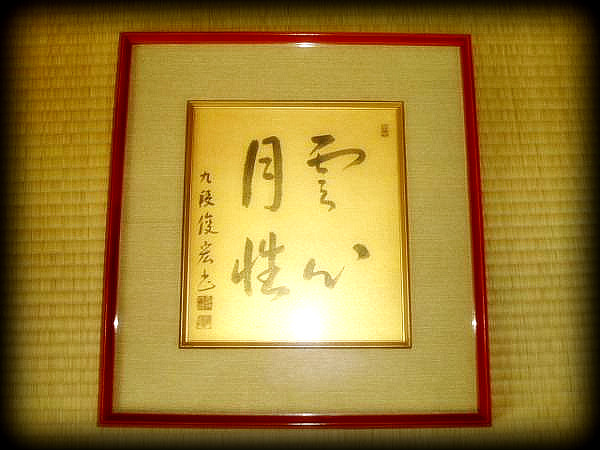 雲心
月性
九段俊宏書